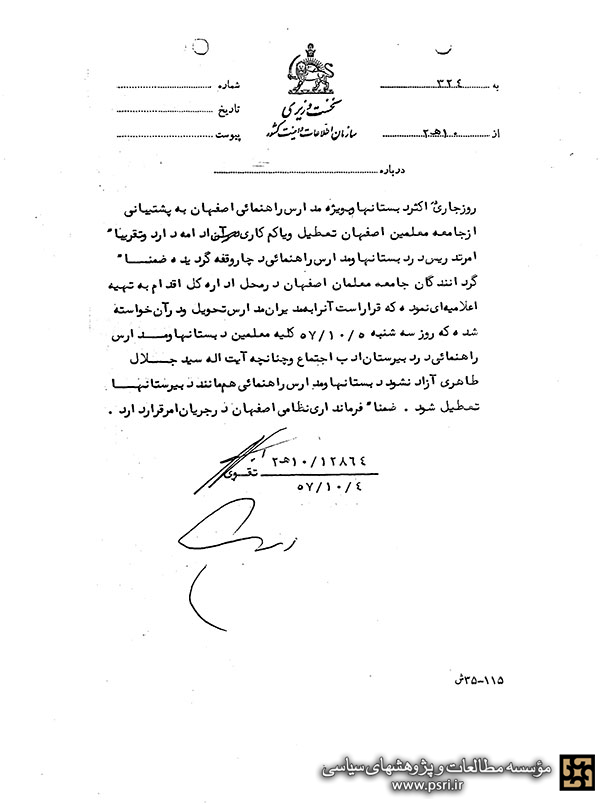 به ۳۲۴
شماره
نخست وزیری
تاریخ
سازمان اطلاعات و امنیت کشور
از ۱۰هـ۲
پیوست
درباره
روزجاری اکثردبستانهاوبویژه مدارس راهنمائی اصفهان به پشتیبانی
ازجامعه معلمین اصفهان تعطیل ویاکم کاری درآن ادامه دارد وتقریبا"
امرتدریس درد بستانها ومدارس راهنمائی دچاروقفه گردیده ضمنا"
گردانندگان جامعه معلمان اصفهان درمحل اداره کل اقدام به تهیه
اعلامیه‌ای نموده که قراراست آنرابه مدیران مدارس تحویل ودرآن خواسته
شده که روز سه شنبه ۵۷/۱۰/۵ کلیه معلمین دبستانها ومدارس
راهنمائی درد بیرستان ادب اجتماع وچنانچه آیت اله سید جلال
طاهری آزاد نشود دبستانها ومدارس راهنمائی هم مانند دبیرستانها
تعطیل شود . ضمنا" فرمانداری نظامی اصفهان درجریان امرقراردارد .
۱۰/۱۲۸۶۴هـ۲
تقوی
۵۷/۱۰/۴
۳۵-۱۱۵ش
مؤسسه مطالعات و پژوهشهای سیاسی
www.psri.ir